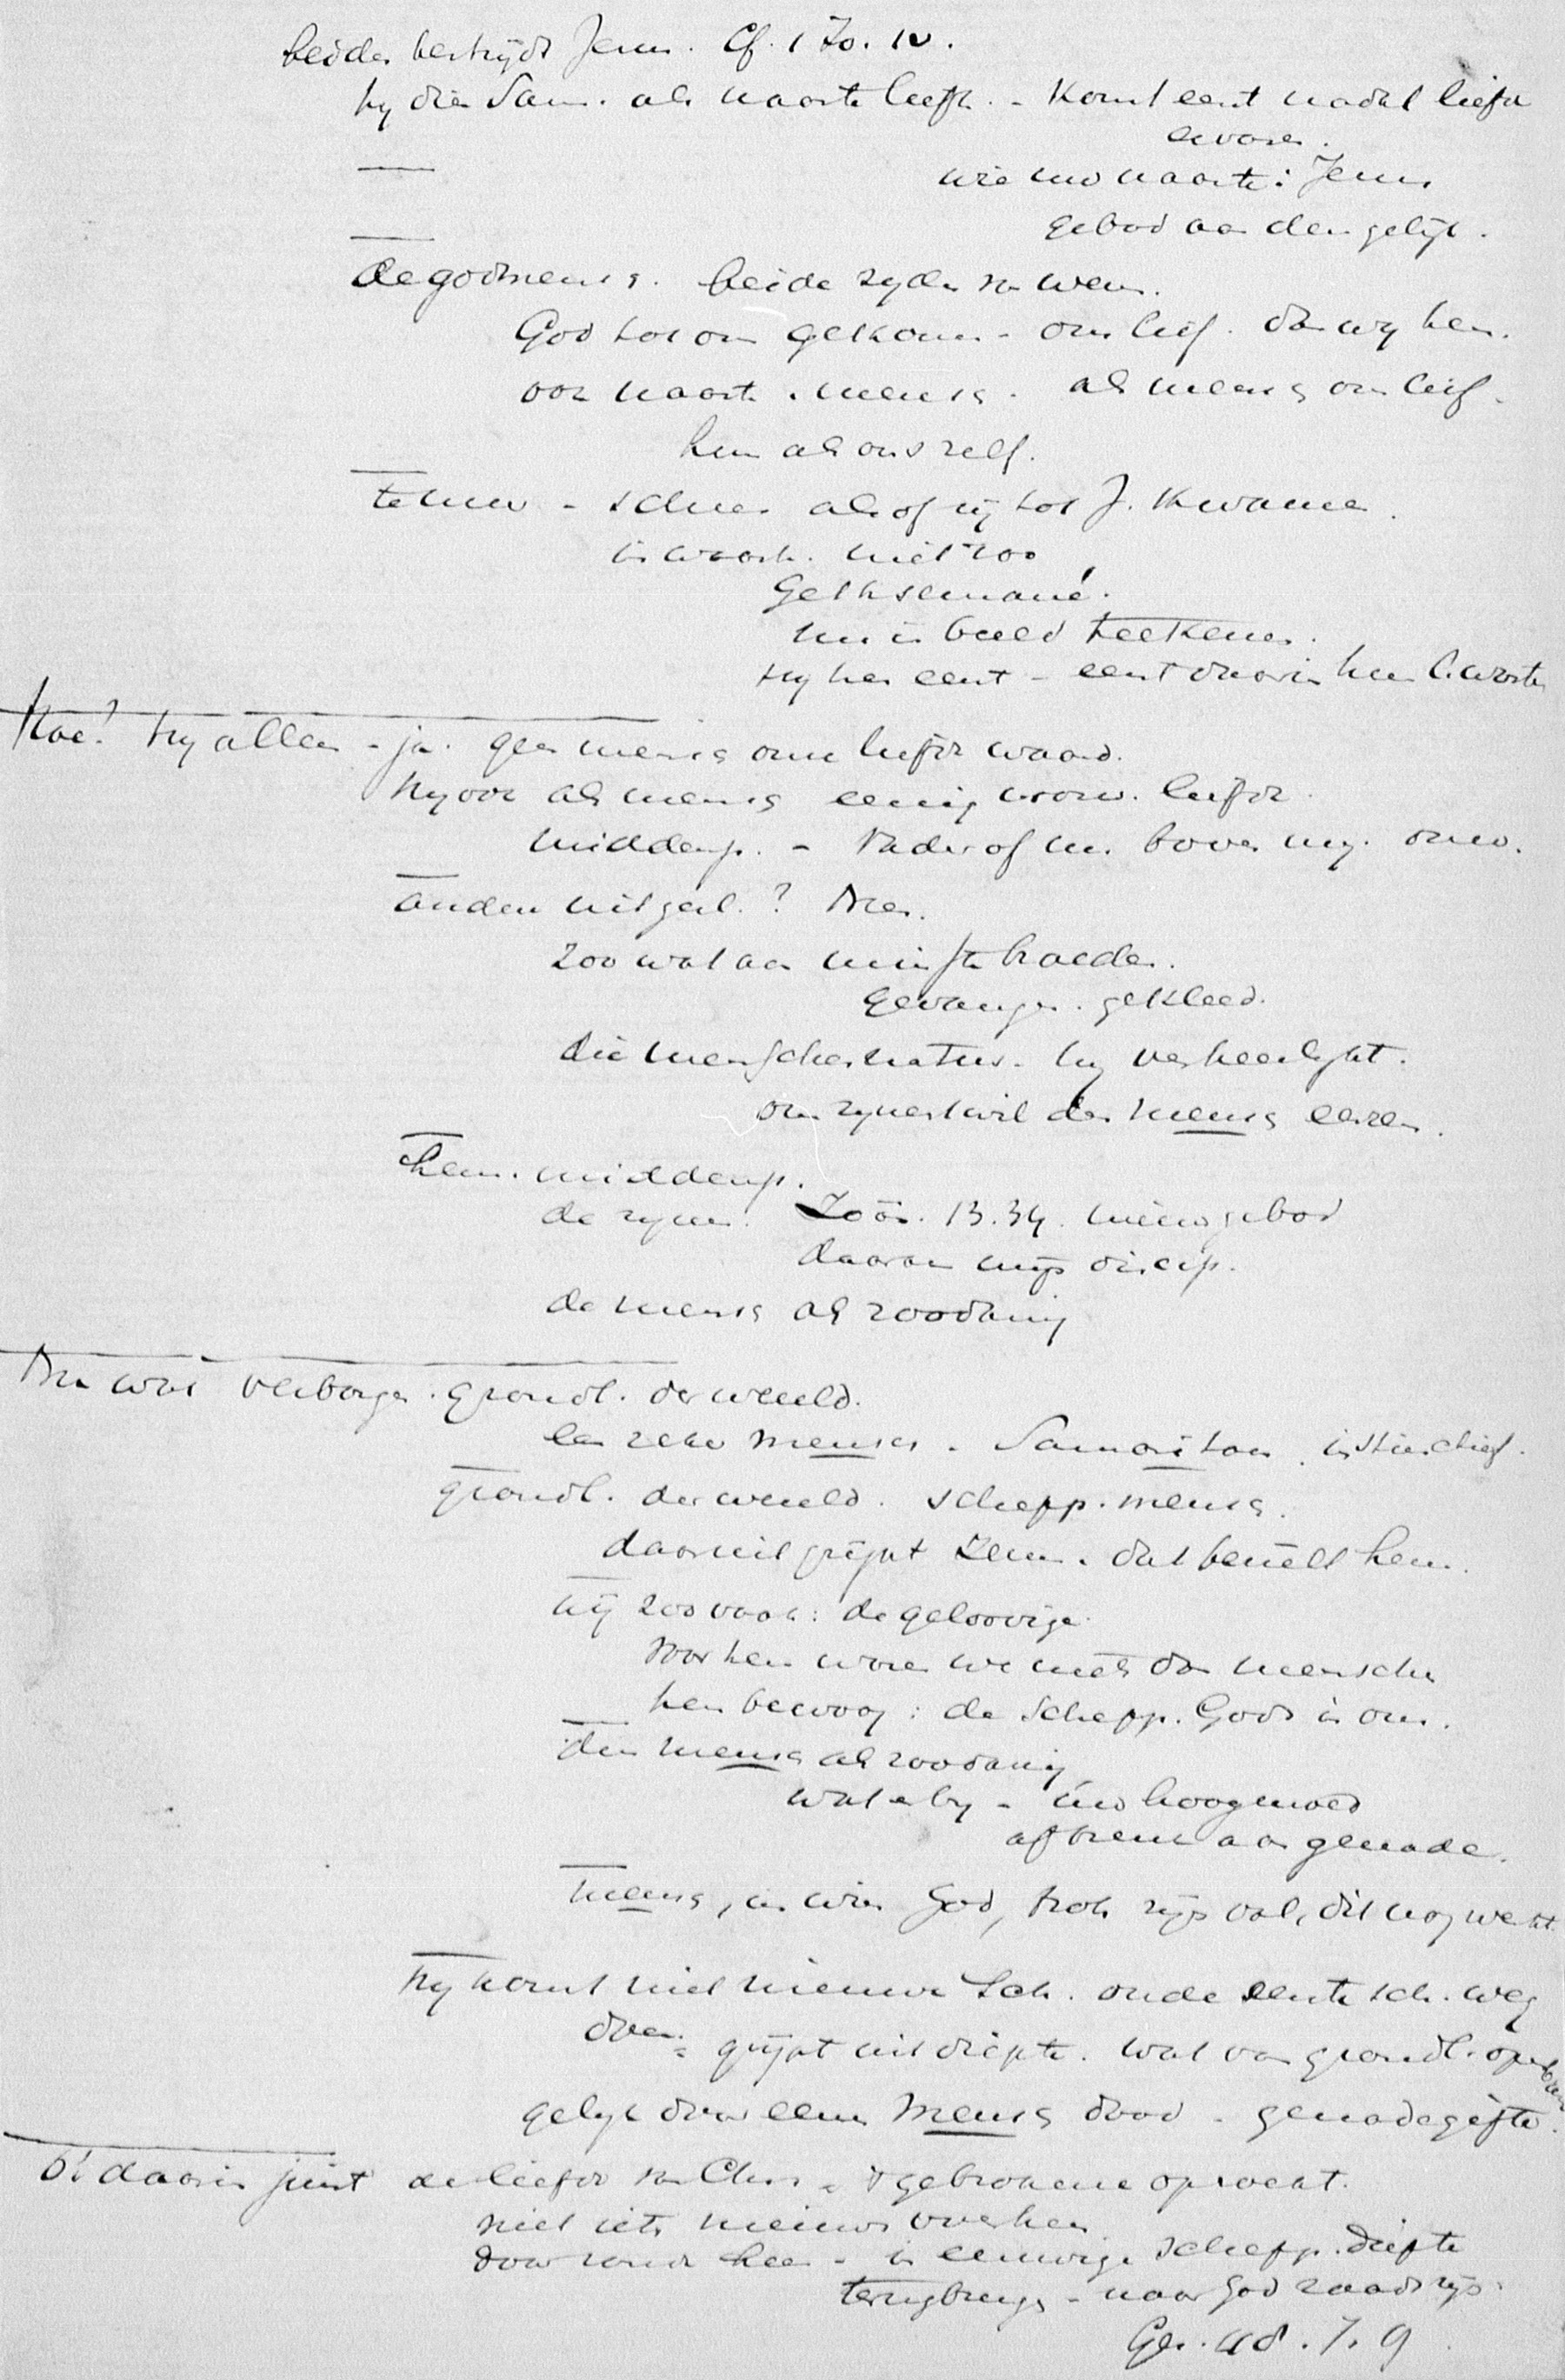 beiden bestrijdt Jezus. Cf. 1 Jo. 10.
hy die Sam. als naaste liefh. - Komt eerst nadat liefde
ervaren.
wie uw naaste: Jezus
gebod aan den gelijk.
de godmensch. beide zyden v
God tot ons gekomen - ons lief. dan wy hem.
ook naaste. mensch. als mensch ons lief.
hem als onszelf.
scheen alsof wij tot J. kwamen.
is waarh. niet zoo
Gethsemané.
in beeld teekenen.
hy hen eerst - eerst daarin hun
Hoe? hy alleen - ja. geen mensch onze liefde waard.
hy ook als mensch eenig liefde
middenp. - Vader of m. boven my. onw.
anderen uitgesl.? Neen.
zoo wat aan minste broeder.
gevangen. gekleed.
die menschennatuur. hy verheerlykt.
om zynentwil den mensch eeren.
hem. middenp.
de zynen. Joh. 13.34. nieuw gebod
daaraan mijn discip.
de mensch als zoodanig
Nu wat verborgen. grondl. der wereld.
een zeker mensch. Samaritaan. instinctief.
grondl. der wereld. schepp. mensch.
daaruit grijpt Jezus. dat bezielt hem.
wij zoo vaak: de geloovige
Voor hem waren we niets dan menschen
hem bewoog: de schepp. Gods in ons.
den mensch als zoodanig
wat erby - uw hoogmoed
afbreuk aan genade.
mensch, in wien God, trots zijn val, dit nog wekt
hy komt niet nieuwe Sch. oude eerste sch. weg
doen. = grijpt uit diepte. wat van grondl.
gelyk door eenen mensch dood - genadegifte.
O! daarin juist de liefde van Chr. 't gebrokene opzoekt.
niet iets nieuws over hen
door zonde heen - in eeuwige schepp. diepte
terugbrengen - naar God raad zijn.
Gez. 48. 7. 9